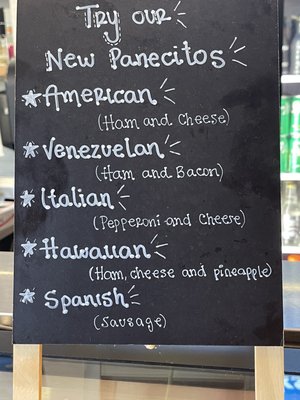 Try our
New Panecitos
American
(Ham and Cheese)
Venezuelan
(Ham and Bacon)
Italian
(Pepperoni and Cheese)
Hawaiian
(Ham, cheese and pineapple)
Spanish
(Sausage)